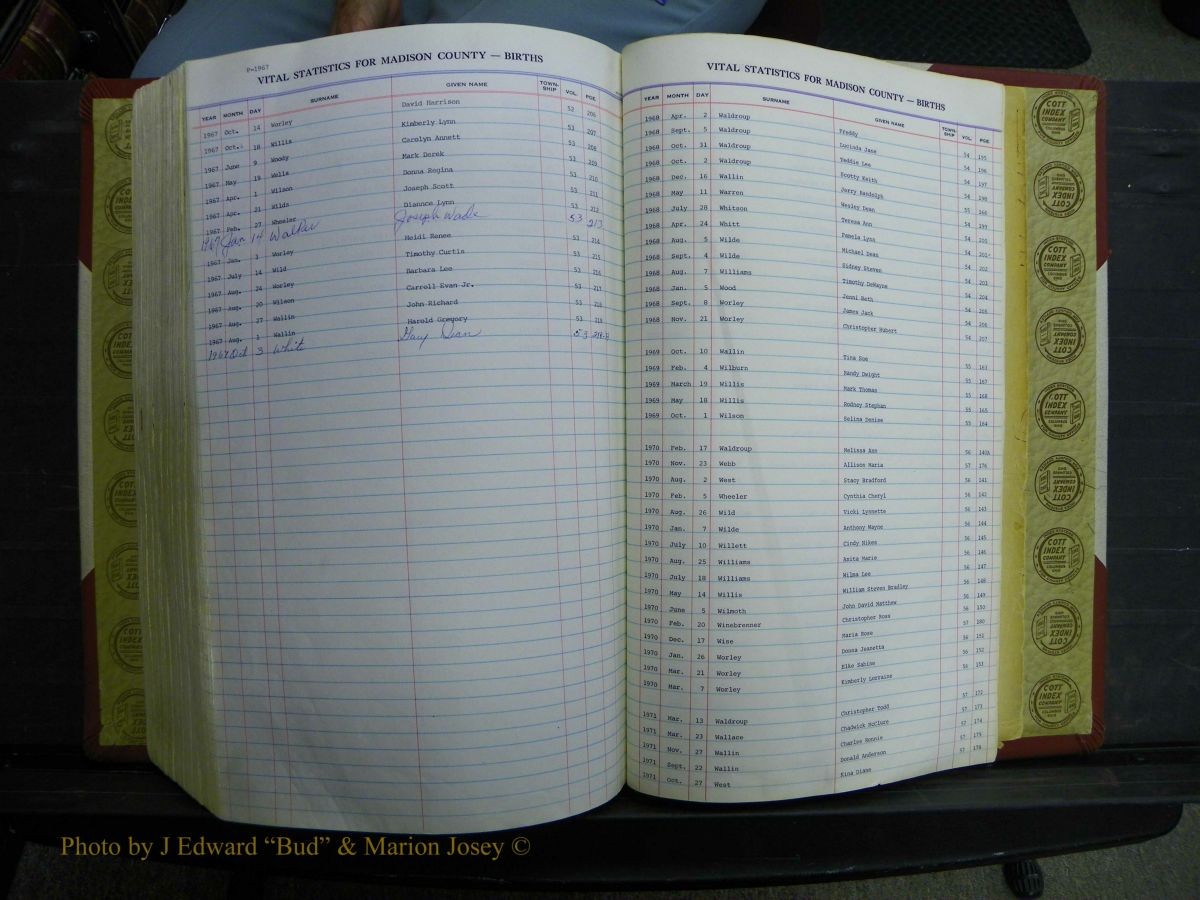 P-1967
VITAL STATISTICS FOR MADISON COUNTY — BIRTHS
YEAR MONTH DAY SURNAME GIVEN NAME TOWN-SHIP VOL. PGE
1967 Oct. 14 Worley David Harrison 52 206
1967 Oct. 18 Willis Kimberly Lynn 53 207
1967 June 9 Woody Carolyn Annett 53 208
1967 May 19 Wells Mark Derek 53 209
1967 Apr. 1 Wilson Donna Regina 53 210
1967 Apr. 21 Wilds Joseph Scott 53 211
1967 Feb. 27 Wheeler Diannce Lynn 53 212
1967 Jan 14 Walker Joseph Wade 53 213
1967 Jan. 3 Worley Heidi Renee 53 214
1967 July 14 Wild Timothy Curtis 53 215
1967 Aug. 24 Worley Barbara Lee 53 216
1967 Aug. 20 Wilson Carroll Evan Jr. 53 217
1967 Aug. 27 Wallin John Richard 53 218
1967 Aug. 1 Wallin Harold Gregory 53 219
1967 Oct 3 White Gary Dean 53
VITAL STATISTICS FOR MADISON COUNTY — BIRTHS
YEAR MONTH DAY SURNAME GIVEN NAME TOWN-SHIP VOL. PGE
1968 Apr. 2 Waldroup Freddy 54 195
1968 Sept. 5 Waldroup Lucinda Jane 54 196
1968 Oct. 31 Waldroup Teddie Lee 54 197
1968 Oct. 2 Waldroup Scotty Keith 54 198
1968 Dec. 16 Wallin Jerry Randolph 55 166
1968 May 11 Warren Wesley Dean 54 199
1968 July 28 Whitson Teresa Ann 54
1968 Apr. 24 Whitt Pamela Lynn 54 201
1968 Aug. 5 Wilde Michael Dean 54 202
1968 Sept. 4 Wilde Sidney Steven 54 203
1968 Aug. 7 Williams Timothy DeWayne 54 204
1968 Jan. 5 Wood Jonni Beth 54 205
1968 Sept. 8 Worley James Jack 54 206
1968 Nov. 21 Worley Christopher Hubert 54 207
1969 Oct. 10 Wallin Tina Sue 55 161
1969 Feb. 4 Wilburn Randy Dwight 55 167
1969 March 19 Willis Mark Thomas 55 168
1969 May 18 Willis Rodney Stephan 55 165
1969 Oct. 1 Wilson Selina Denise 55 164
1970 Feb. 17 Waldroup Melissa Ann 56 140A
1970 Nov. 23 Webb Allison Maria 57 176
1970 Aug. 2 West Stacy Bradford 56 141
1970 Feb. 5 Wheeler Cynthia Cheryl 56 142
1970 Aug. 26 Wild Vicki Lynnette 56 143
1970 Jan. 7 Wilde Anthony Wayne 56 144
1970 July 10 Willett Cindy Nikea 56 145
1970 Aug. 25 Williams Anita Marie 56 146
1970 July 18 Williams Wilma Lee 56 147
1970 May 14 Willis William Steven Bradley 56 148
1970 June 5 Wilmoth John David Matthew 56 149
1970 Feb. 20 Winebrenner Christopher Ross 56 150
1970 Dec. 17 Wise Maria Rose 57 180
1970 Jan. 26 Worley Donna Jeanetta 56 151
1970 Mar. 21 Worley Elke Sabine 56 152
1970 Mar. 7 Worley Kimberly Lorraine 56 153
1971 Mar. 13 Waldroup Christopher Todd 57 172
1971 Mar. 23 Wallace Chadwick McClure 57 173
1971 Nov. 27 Wallin Charles Ronnie 57 174
1971 Sept. 22 Wallin Donald Anderson 57 175
1971 Oct. 27 West Nina Diane 57 176
COTT INDEX COMPANY COLUMBUS OHIO
COTT INDEX COMPANY
COTT INDEX COMPANY
COTT INDEX COMPANY
COTT INDEX COMPANY
COTT INDEX COMPANY
COTT INDEX COMPANY
COTT INDEX COMPANY
COTT INDEX COMPANY
Photo by J Edward “Bud” & Marion Josey ©